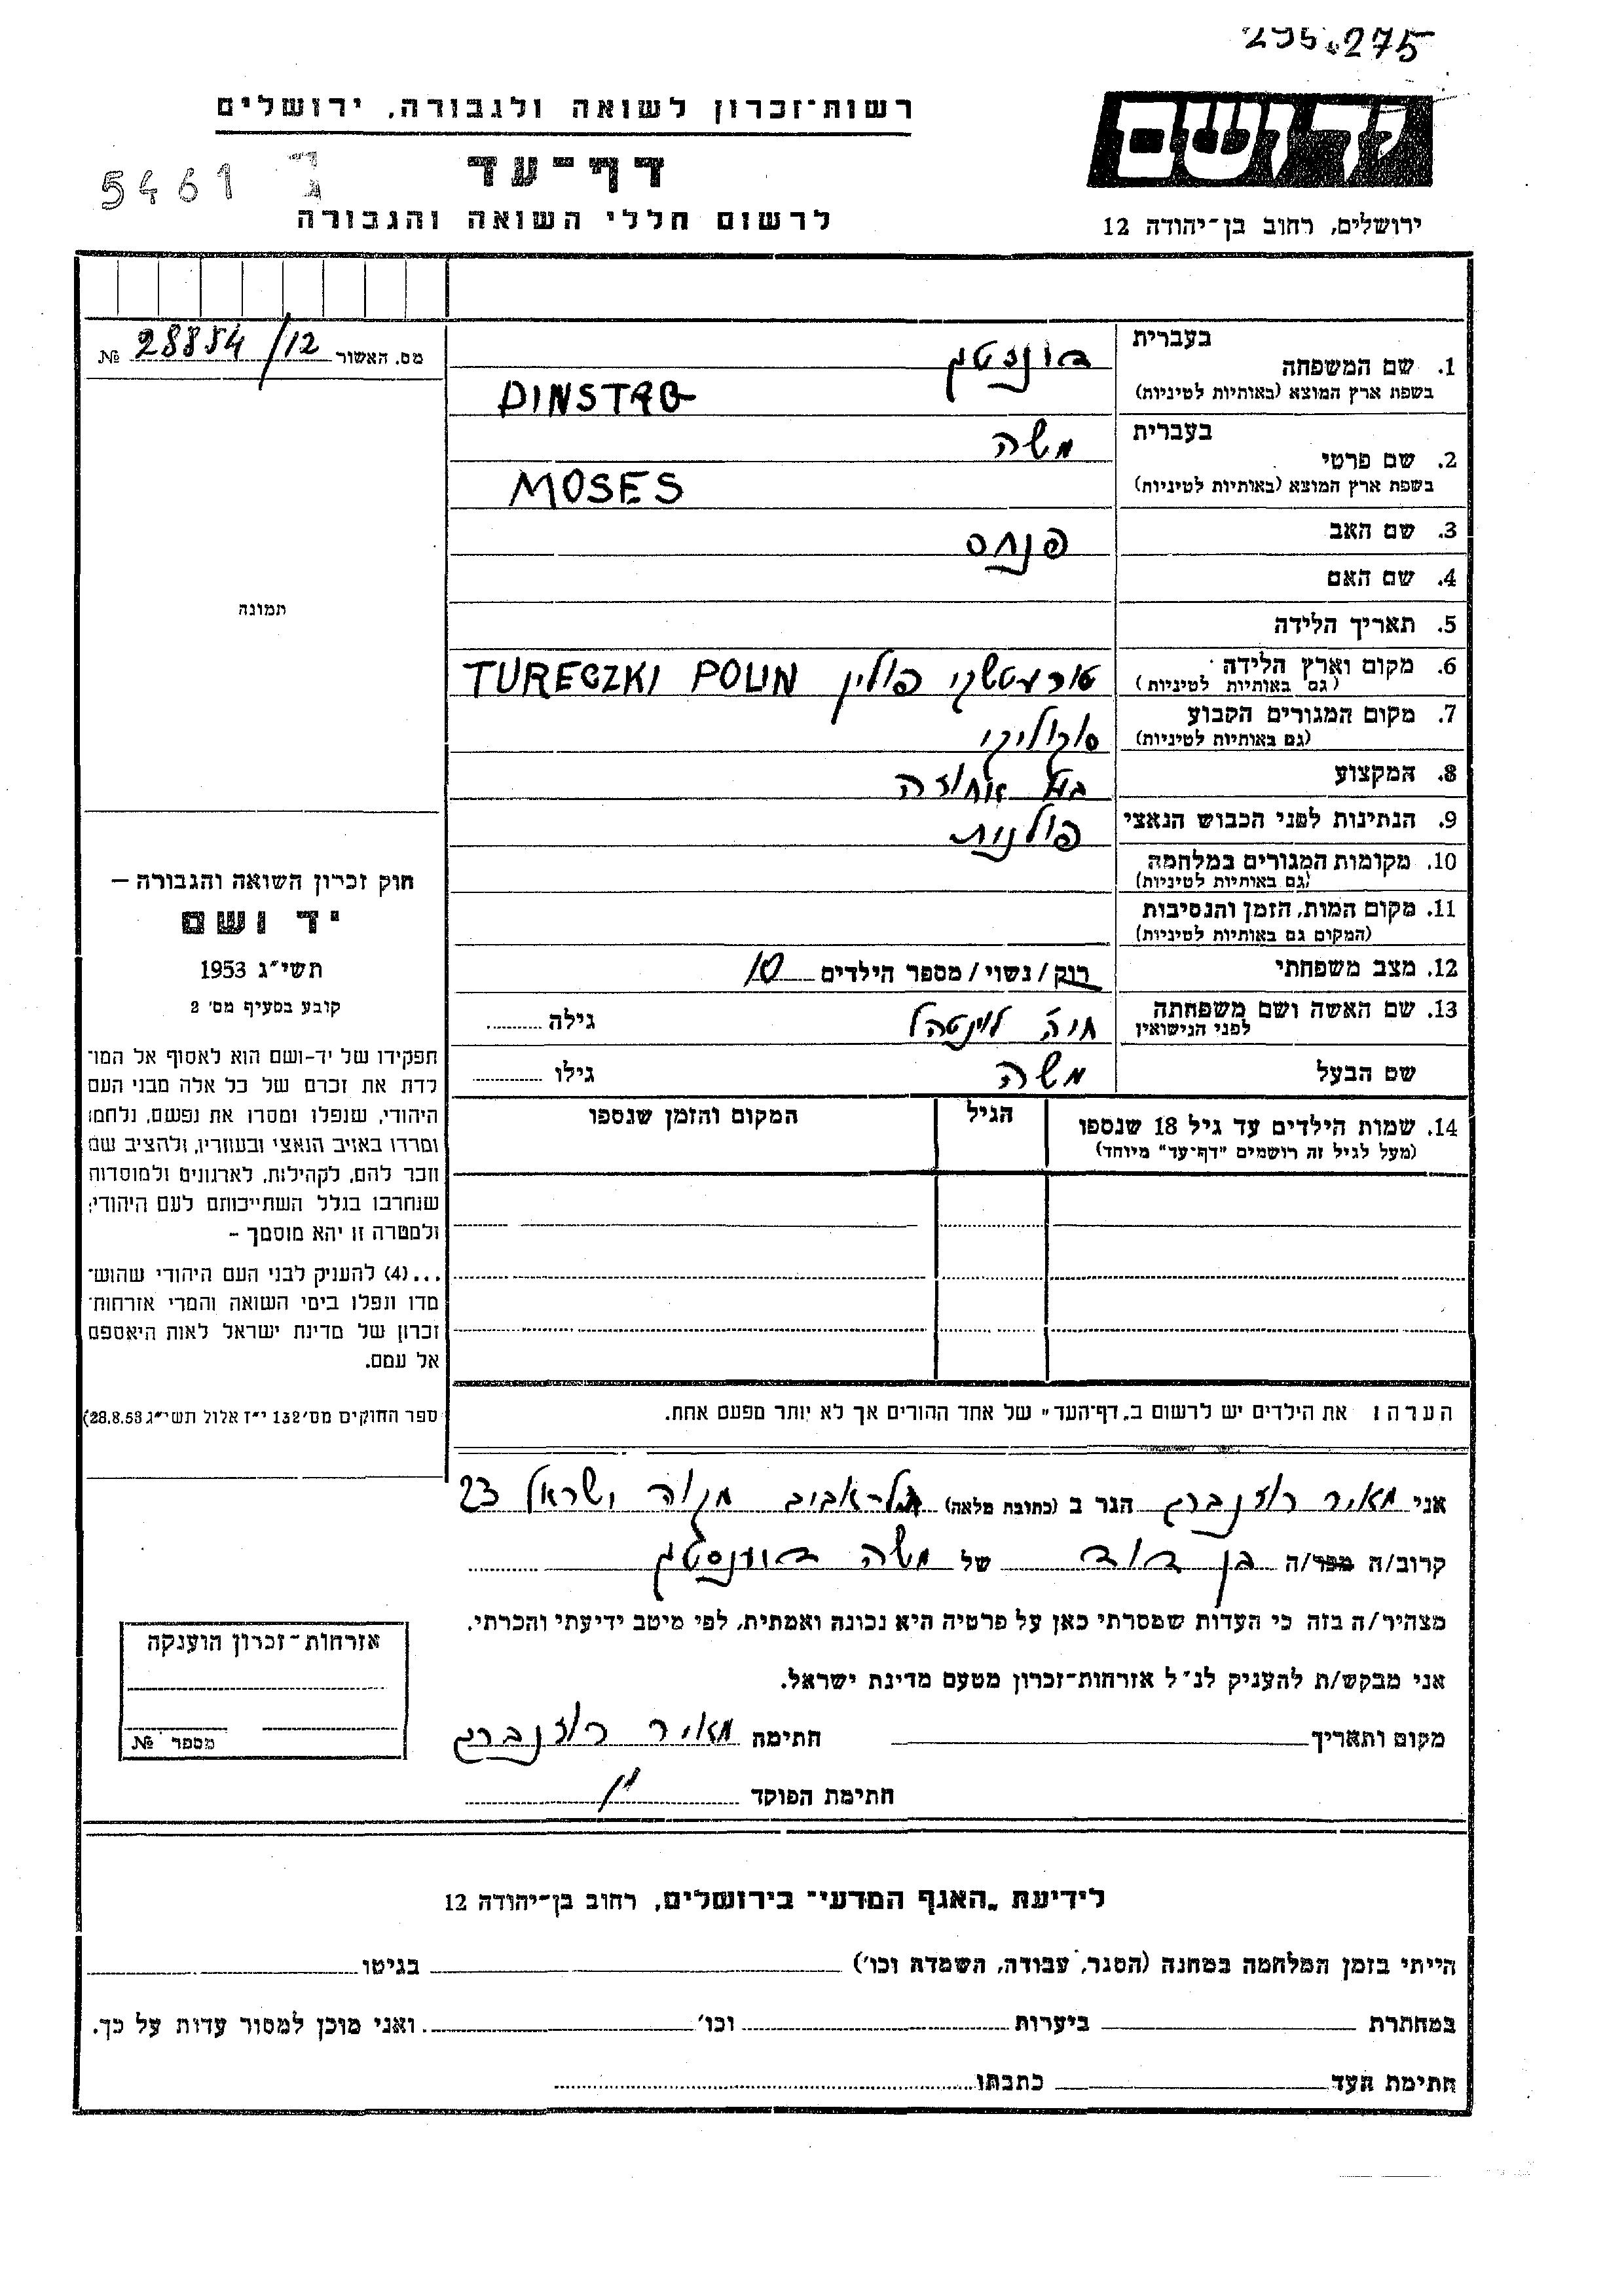 295.275
רשות-זכרון לשואה ולגבורה, ירושלים
יד ושם
דף-עד
5461 ג
לרשום חללי השואה והגבורה
ירושלים, רחוב בן-יהודה 12
מס. האשור 28854/12 №
בעברית
1. שם המשפחה
בשפת ארץ המוצא (באותיות לטיניות) DINSTAG
בעברית משה
2. שם פרטי
בשפת ארץ המוצא (באותיות לטיניות) MOSES
3. שם האב פנחס
4. שם האם
תמונה
5. תאריך הלידה
6. מקום וארץ הלידה טורעטשקי פולין TURECZKI POLIN
(גם באותיות לטיניות)
7. מקום המגורים הקבוע סקוליקי
(גם באותיות לטיניות)
8. המקצוע בעל אחוזה
9. הנתינות לפני הכבוש הנאצי פולנית
10. מקומות המגורים במלחמה
(גם באותיות לטיניות)
11. מקום המות, הזמן והנסיבות
(המקום גם באותיות לטיניות)
12. מצב משפחתי רוק/נשוי/מספר הילדים 10
13. שם האשה ושם משפחתה חיה לוינטהל גילה
לפני הנישואין
שם הבעל משה גילו
14. שמות הילדים עד גיל 18 שנספו הגיל המקום והזמן שנספו
(מעל לגיל זה רושמים "דף-עד" מיוחד)
חוק זכרון השואה והגבורה –
יד ושם
תשי"ג 1953
קובע בסעיף מס' 2
תפקידו של יד-ושם הוא לאסוף אל המו־
לדת את זכרם של כל אלה מבני העם
היהודי, שנפלו ומסרו את נפשם, נלחמו
ומרדו באויב הנאצי ובעוזריו, ולהציב שם
וזכר להם, לקהילות, לארגונים ולמוסדות
שנחרבו בגלל השתייכותם לעם היהודי;
ולמטרה זו יהא מוסמך –
...(4) להעניק לבני העם היהודי שהוש־
מדו ונפלו בימי השואה והמרי אזרחות־
זכרון של מדינת ישראל לאות היאספם
אל עמם.
ספר החוקים מס' 132 י"ז אלול תשי"ג 28.8.53)
הערה: את הילדים יש לרשום ב„דף-העד" של אחד ההורים אך לא יותר מפעם אחת.
אני מאיר רוזנברג הגר ב (כתובת מלאה) תל-אביב מקוה ישראל 23
קרוב/ה מכר/ה בן דוד של משה דוינסטג
מצהיר/ה בזה כי העדות שמסרתי כאן על פרטיה היא נכונה ואמתית, לפי מיטב ידיעתי והכרתי.
אני מבקש/ת להעניק לנ"ל אזרחות-זכרון מטעם מדינת ישראל.
מקום ותאריך חתימה מאיר רוזנברג
חתימת הפוקד
אזרחות-זכרון הוענקה
מספר №
לידיעת „האגף המדעי" בירושלים, רחוב בן-יהודה 12
הייתי בזמן המלחמה במחנה (הסגר, עבודה, השמדה וכו') בגיטו
במחתרת ביערות וכו' ואני מוכן למסור עדות על כך.
חתימת העד כתבתו